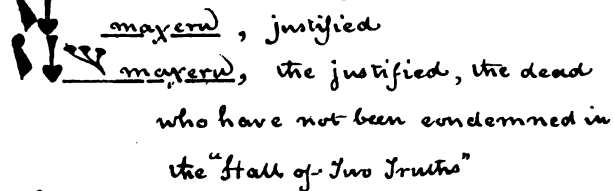 maχeru, justified
maχeru, the justified, the dead
who have not been condemned in
the "Hall of Two Truths"